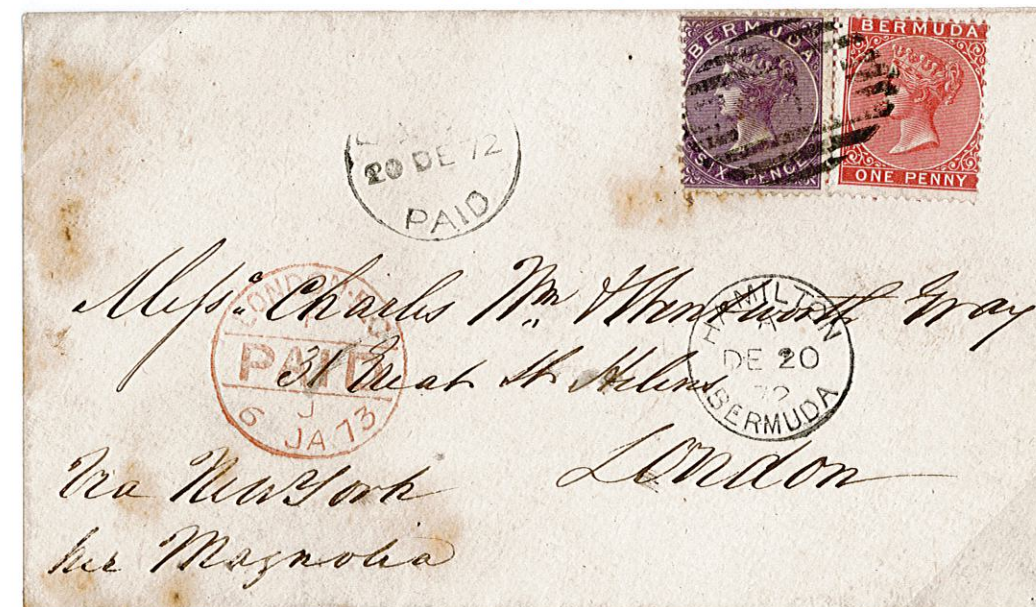 BERMUDA
SIX PENCE
BERMUDA
ONE PENNY
20 DE 72
PAID
Messrs. Charles Wm. & Wentworth Gray
31 Great St. Helens
London
LONDON
PAID
J
6 JA 73
HAMILTON
A
DE 20
72
BERMUDA
Via New York
per Magnolia